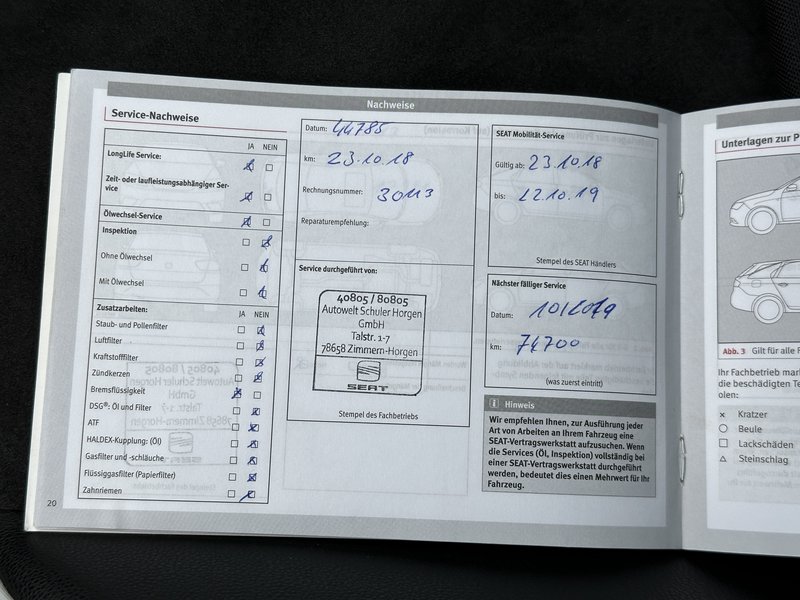 Nachweise
Service-Nachweise
JA NEIN
LongLife Service:
Zeit- oder laufleistungsabhängiger Ser-
vice
Ölwechsel-Service
Inspektion
Ohne Ölwechsel
Mit Ölwechsel
Zusatzarbeiten: JA NEIN
Staub- und Pollenfilter
Luftfilter
Kraftstofffilter
Zündkerzen
Bremsflüssigkeit
DSG®: Öl und Filter
ATF
HALDEX-Kupplung: (Öl)
Gasfilter und -schläuche
Flüssiggasfilter (Papierfilter)
Zahnriemen
20
Datum: 44785
km: 23.10.18
Rechnungsnummer: 30113
Reparaturempfehlung:
Service durchgeführt von:
40805 / 80805
Autowelt Schuler Horgen
GmbH
Talstr. 1-7
78658 Zimmern-Horgen
SEAT
Stempel des Fachbetriebs
SEAT Mobilität-Service
Gültig ab: 23.10.18
bis: 22.10.19
Stempel des SEAT Händlers
Nächster fälliger Service
Datum: 10/2019
km: 74700
(was zuerst eintritt)
i Hinweis
Wir empfehlen Ihnen, zur Ausführung jeder
Art von Arbeiten an Ihrem Fahrzeug eine
SEAT-Vertragswerkstatt aufzusuchen. Wenn
die Services (Öl, Inspektion) vollständig bei
einer SEAT-Vertragswerkstatt durchgeführt
werden, bedeutet dies einen Mehrwert für Ihr
Fahrzeug.
Unterlagen zur P
Abb. 3 Gilt für alle F
Ihr Fachbetrieb mar
die beschädigten Te
olen:
× Kratzer
○ Beule
□ Lackschäden
△ Steinschlag